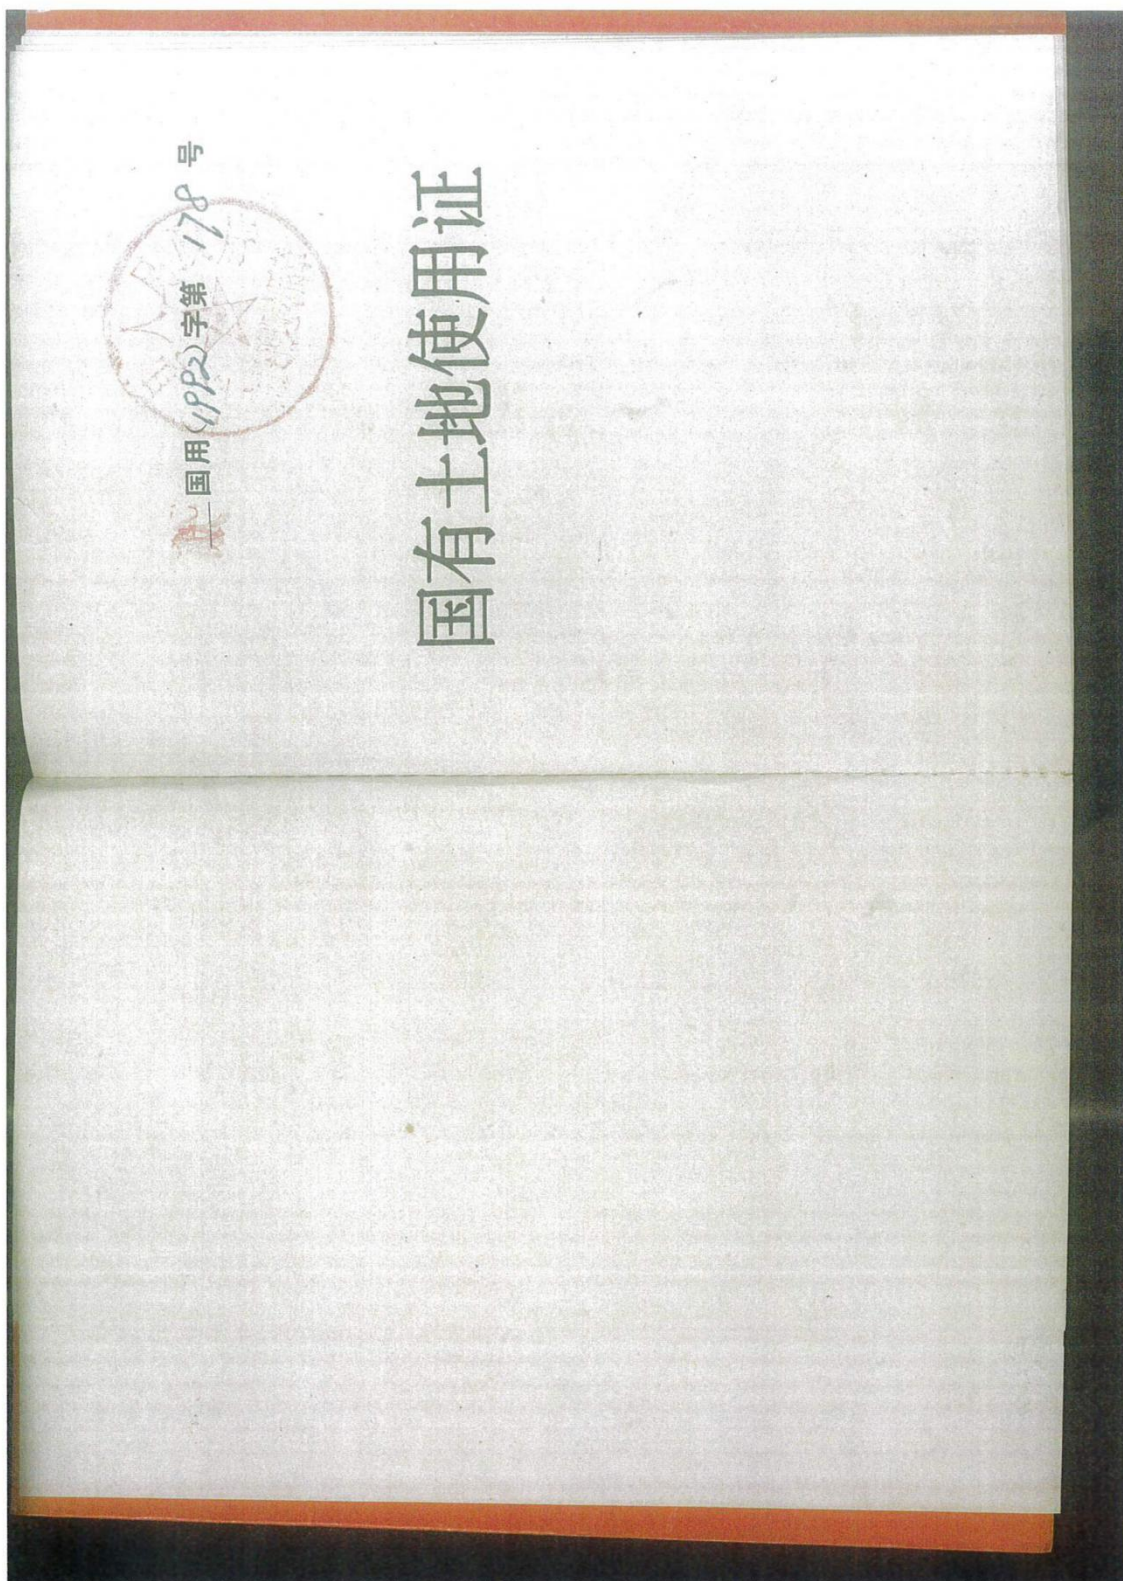 国用(1992)字第178号
国有土地使用证